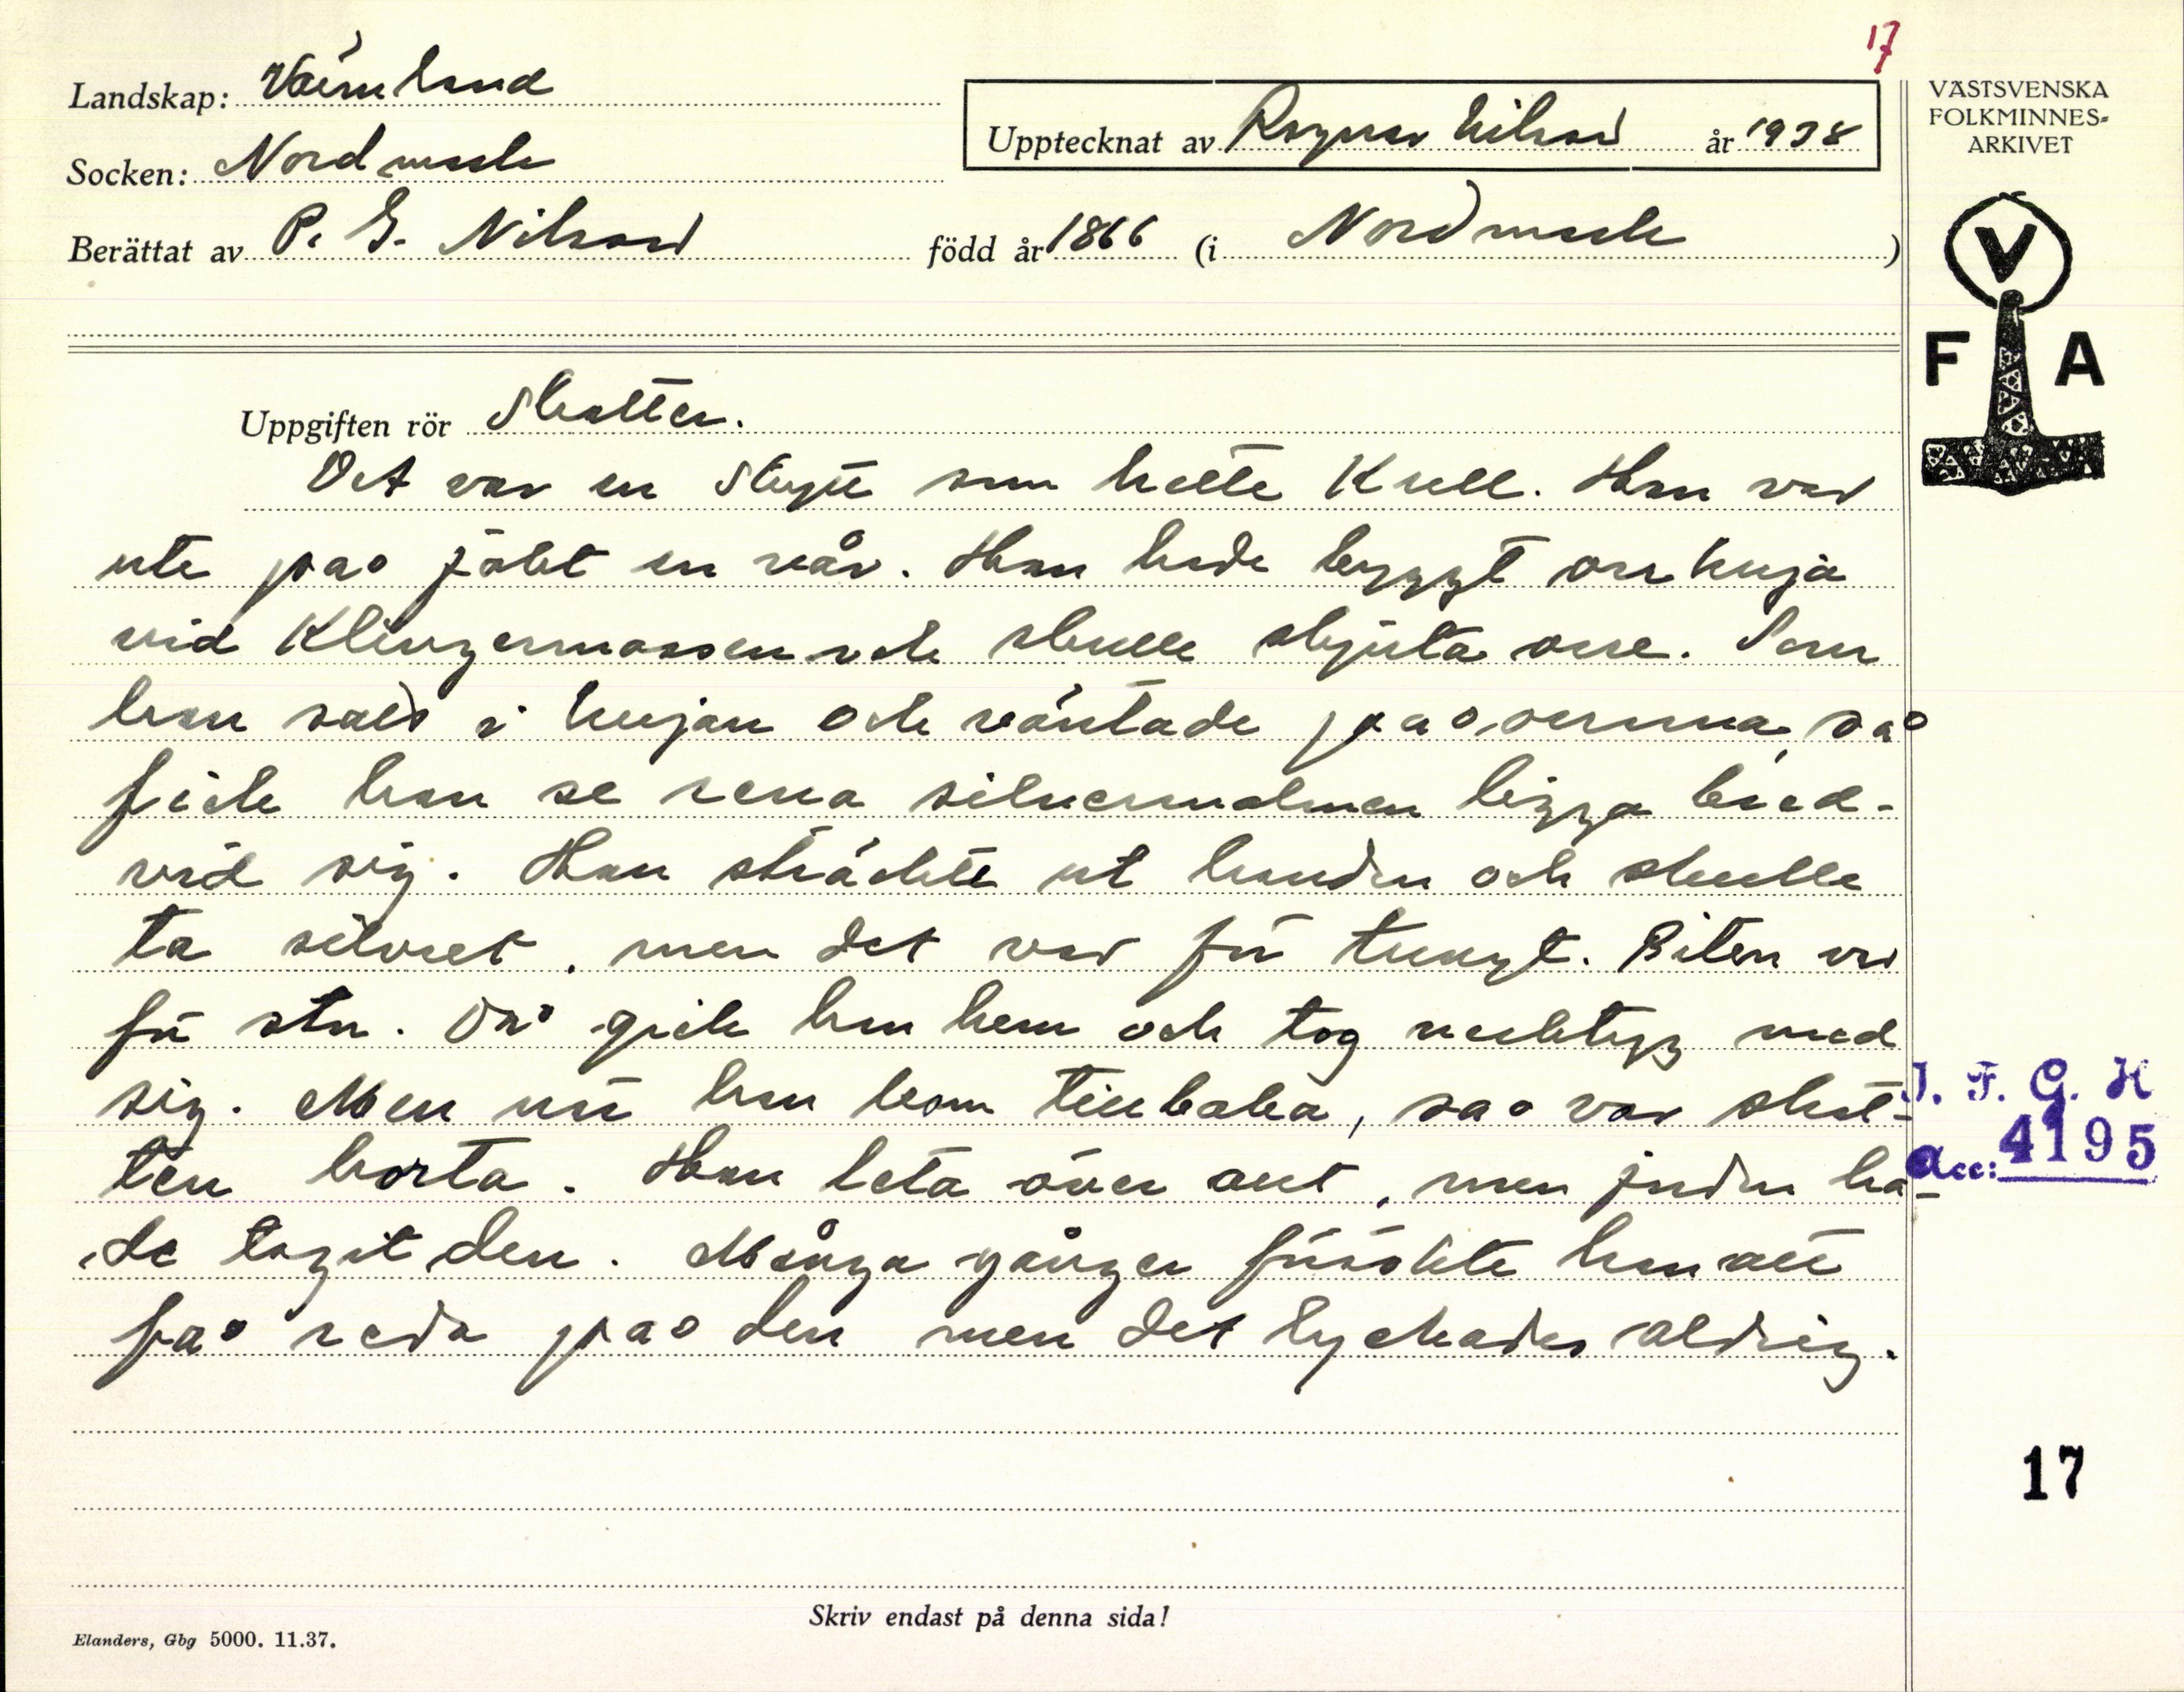 17
Landskap: Värmland
Upptecknat av Ragnar Nilsson år 1938
VÄSTSVENSKA
FOLKMINNES-
ARKIVET
Socken: Nordmark
Berättat av P. G. Nilsson född år 1866 (i Nordmark)
V
F A
Uppgiften rör Skatter.
Det var en skytt som hette Krell. Han var
ute på jakt en vår. Han hade byggt orrkuja
vid Klingermossen och skulle skjuta orre. Som
han satt i kujan och väntade på orrarna, så
fick han se rena silvermalmen ligga bred-
vid sig. Han sträckte ut handen och skulle
ta silvret, men det var för tungt. Biten var
för stor. Då gick han hem och tog verktyg med
sig. Men när han kom tillbaka, så var skat-
ten borta. Han leta över allt, men jorden ha-
de tagit den. Många gånger försökte han att
få reda på den men det lyckades aldrig.
I. F. G. H
Acc: 4195
17
Skriv endast på denna sida!
Elanders, Gbg 5000. 11.37.